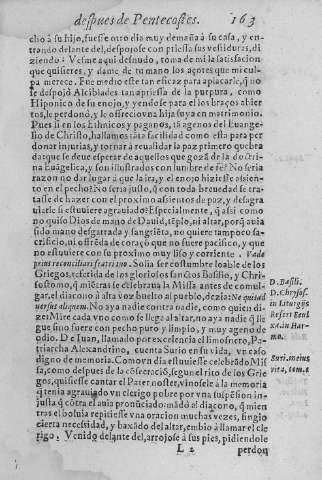 despues de Pentecostes. 163
cho à su hijo, fuesse otro dia muy demañana à su casa, y en-
trando delante del, despojose con priessa sus vestiduras, di-
ziendo: Vesme aqui desnudo, toma de mi la satisfacion
que quisieres, y dame de tu mano los açotes que mi cul-
pa merece. Fue medio este tan eficaz para aplacarle, q̃ no
se despojò Alcibiades tan apriessa de la purpura, como
Hiponico de su enojo, y yendose para el los braços abier
tos, le perdonò, y le ofrecio vna hija suya en matrimonio.
Pues si en los Ethnicos y paganos, tã agenos del Euange-
lio de Christo, hallamos tãta facilidad como esta para per
donar injurias, y tornar à reualidar la paz primero quebra
da, que se deue esperar de aquellos que gozã de la doctri-
na Euãgelica, y son illustrados con lumbre de fè? No seria
razon no dar lugar à que la ira, y el enojo hiziesse assien-
to en el pecho? No seria justo, q̃ con toda breuedad se tra-
tasse de hazer con el proximo assientos de paz, y desagra
uiarle si estuuiere agrauiado? Especialmente, q̃ assi como
no quiso Dios de mano de Dauid, tẽplo, ni altar, porq̃ auia
sido mano desgarrada y sangriẽta, no quiere tampoco sa-
crificio, ni ofrẽda de coraçõ que no fuere pacifico, y que
no estuuiere con su proximo muy liso y corriente. Vade
prius reconciliari fratri tuo. Solia ser costumbre loable de los
Griegos, referida de los gloriosos sanctos Basilio, y Chri-
sostomo, q̃ mietras se celebraua la Missa antes de comul-
gar, el diacono à alta voz buelto al pueblo, dezia: Ne quis ad-
uersus aliquem. No aya nadie contra nadie, como quien di-
ze: Mire cada vno como se llega al altar, no aya nadie q̃ lle
gue sino fuere con pecho puro y limpio, y muy ageno de
odio. De Iuan, llamado por excelencia el limosnero, Pa-
triarcha Alexandrino, cuenta Surio en su vida, vn caso
digno de memoria. Como vn dia estuuiesse celebrãdo Mis
sa, como despues de la cõsecraciõ, segun el rito de los Grie
gos, quisiesse cantar el Pater noster, vinosele à la memoria
q̃ tenia agrauiado vn clerigo pobre por vna suspẽsion in-
justa q̃ cõtra el auia pronũciado: mãdò al diacono, q̃ mien
tras el boluia repitiesse vna oracion muchas vezes, fingio
cierta necessidad, y baxãdo del altar, embio à llamar el cle
rigo: Venido delante del, arrojose à sus pies, pidiendole
L 2 perdon
D. Basili.
D. Chrysos.
in Liturgijs
Refert Beu
xa. in Har-
mo.
Suri. in eius
vita, tom. 1